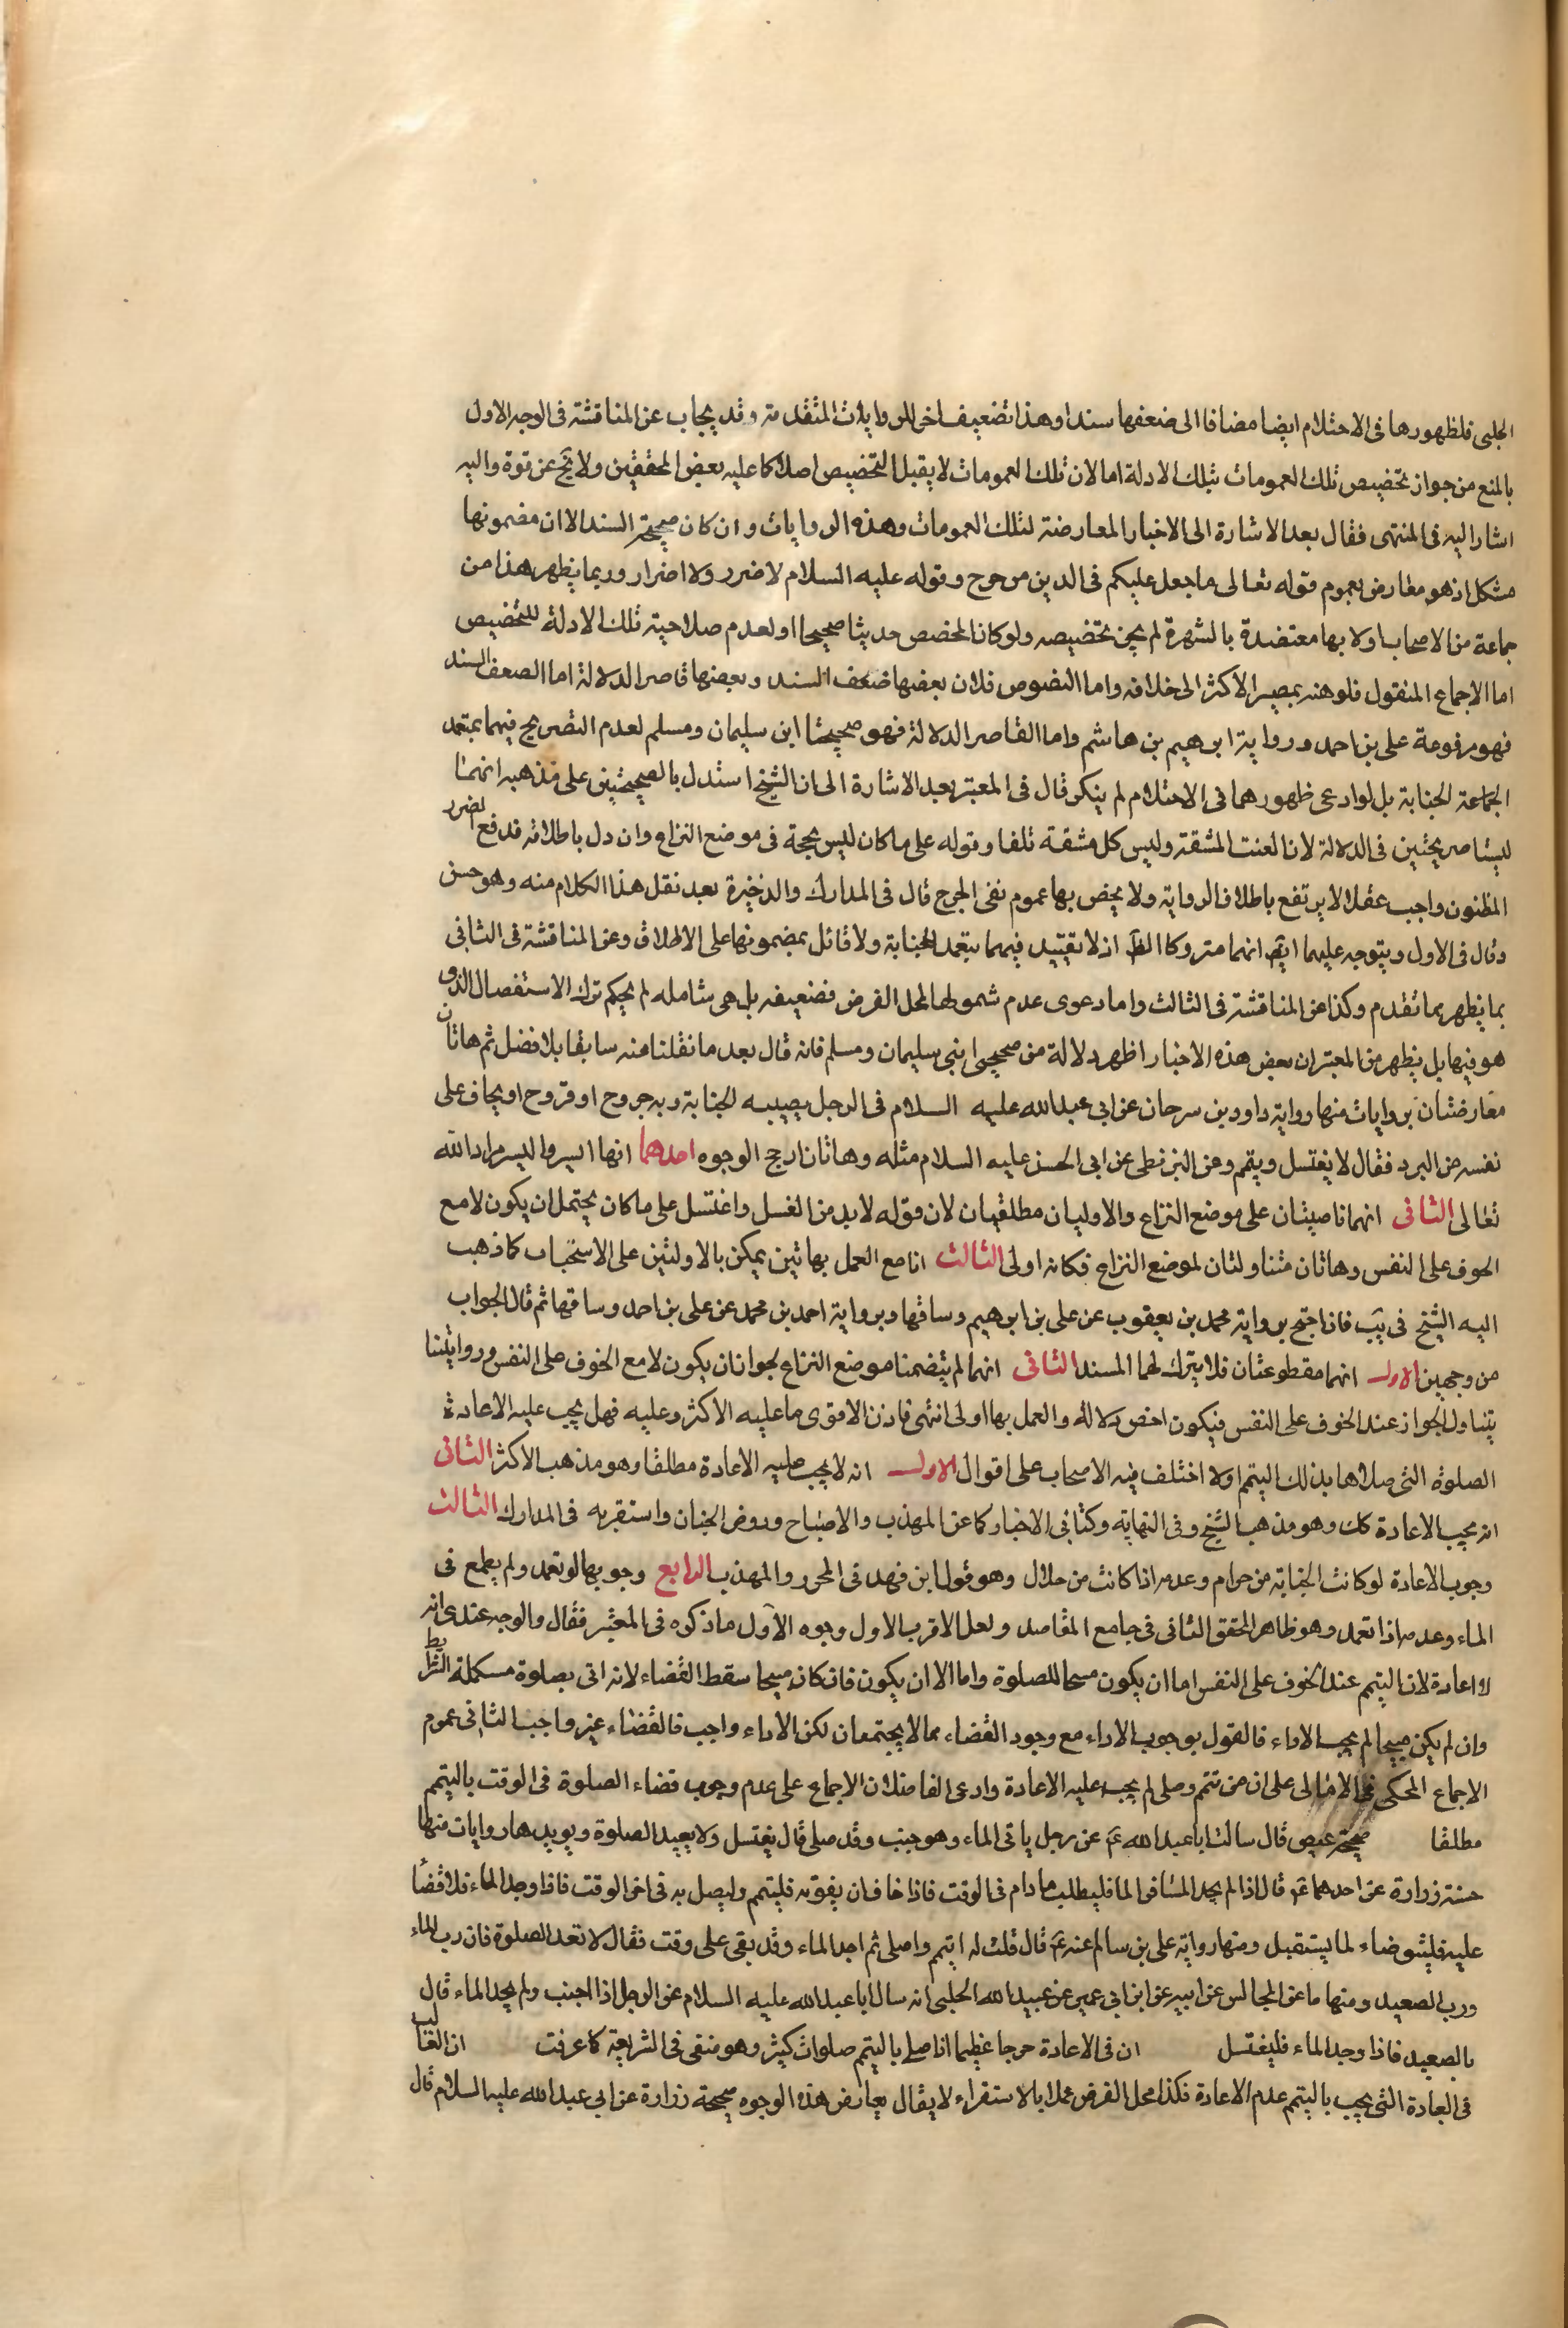 الحلبى فلظهورها فى الاحتلام ايضا مضافا الى ضعفها سندا وهذا تضعيف اخر للروايات المتقدمة وقد يجاب عن المناقشة فى الوجه الاول
بالمنع من جواز تخصيص تلك العمومات بتلك الادلة اما لان تلك العمومات لا يقبل التخصيص اصلا كما عليه بعض المحققين ولا يخ عن قوة واليه
اشار اليه فى المنتهى فقال بعد الاشارة الى الاخبار المعارضة لتلك العمومات وهذه الروايات وان كان صحيحة السند الا ان مضمونها
مشكل اذ هو معارض بعموم قوله تعالى ما جعل عليكم فى الدين من حرج وقوله عليه السلام لا ضرر ولا اضرار وربما يظهر هذا من
جماعة من الاصحاب اولا بها معتضدة بالشهرة لم يجز تخصيصه ولو كان المخصص حديثا صحيحا او لعدم صلاحية تلك الادلة للتخصيص
اما الاجماع المنقول فلوهنه بمصير الاكثر الى خلافه واما النصوص فلان بعضها ضعف السند وبعضها قاصر الدلالة اما الضعف السند
فهو مرفوعة على بن احمد ورواية ابرهيم بن هاشم واما القاصر الدلالة فهو صحيحتا ابن سليمان ومسلم لعدم التصريح فيهما بتعمد
الجماعة الجنابة بل لو ادعى ظهورهما فى الاحتلام لم ينكر قال فى المعتبر بعد الاشارة الى ان الشيخ استدل بالصحيحتين على مذهبه انهما
ليستا صريحتين فى الدلالة لان العنت المشقة وليس كل مشقة تلفا وقوله على ما كان ليس بحجة فى موضع النزاع وان دل باطلاقه فدفع الضرر
المظنون واجب عقلا لا يرتفع باطلاق الرواية ولا يخص بها عموم نفى الحرج قال فى المدارك والذخيرة بعد نقل هذا الكلام منه وهو حسن
وقال فى الاول ويتوجه عليهما ايض انهما متروكا الظ اذ لا تقييد فيهما بتعمد الجنابة ولا قائل بمضمونها على الاطلاق وعن المناقشة فى الثانى
بما يظهر مما تقدم وكذا عن المناقشة فى الثالث واما دعوى عدم شمولها لمحل الفرض فضعيفه بل هى شامله لم بحكم ترك الاستفصال الذى
هو فيها بل يظهر من المعتبر ان بعض هذه الاخبار اظهر دلالة من صحيحى ابنى سليمان ومسلم فانه قال بعد ما نقلنا منه سابقا بلا فضل ثم هاتان
معارضتان بروايات منها رواية داود بن سرحان عن ابى عبد الله عليه السلام فى الرجل يصيبه الجنابة وبه جروح او قروح او يخاف على
نفسه من البرد فقال لا يغتسل ويتمم وعن البزنطى عن ابى الحسن عليه السلام مثله وهاتان ارجح الوجوه احدهما انها ايسر واليسر مراد الله
تعالى الثانى انهما ناصيتان على موضع النزاع والاوليان مطلقيان لان قوله لا بد من الغسل واغتسل على ما كان يحتمل ان يكون لا مع
الخوف على النفس وهاتان متناولتان لموضع النزاع فكانه اولى الثالث انا مع العمل بهاتين يمكن بالاولتين على الاستحباب كما ذهب
اليه الشيخ فى يب فاذا احتج برواية محمد بن يعقوب عن على بن ابرهيم وساقها وبرواية احمد بن محمد عن على بن احمد وساقها ثم قال الجواب
من وجهين الاول انهما مقطوعتان فلا يترك لهما المسند الثانى انهما لم يتضمنا موضع النزاع لجواز ان يكون لا مع الخوف على النفس وروايتنا
يتناول الجواز عند الخوف على النفس فيكون اخص دلالة والعمل بها اولى انتهى فاذن الاقوى ما عليه الاكثر وعليه فهل يجب عليه الاعادة
الصلوة التى صلاها بذلك التيمم اولا اختلف فيه الاصحاب على اقوال الاول انه لا يجب عليه الاعادة مطلقا وهو مذهب الاكثر الثانى
انه يجب الاعادة كك وهو مذهب الشيخ وفى النهاية وكتابى الاخبار كما عن المهذب والاصباح وروض الجنان واستقر به فى المدارك الثالث
وجوب الاعادة لو كانت الجنابة من حرام وعدمه اذا كانت من حلال وهو قول ابن فهد فى المحرر والمهذب الرابع وجوبهما لو تعمد ولم يطمع فى
الماء وعدمه اذا تعمد وهو ظاهر المحقق الثانى فى جامع المقاصد ولعل الاقرب الاول وجوه الاول ما ذكره فى المعتبر فقال والوجه عندى انه
لا اعادة لان التيمم عند الخوف على النفس اما ان يكون مبيحا للصلوة واما الا ان يكون فان كان مبيحا سقط القضاء لانه اتى بصلوة مستكملة الشرائط
وان لم يكن مبيحا لم يجب الاداء فالقول بوجوب الاداء مع وجود القضاء مما لا يجتمعان لكن الاداء واجب فالقضاء غير واجب الثانى عموم
الاجماع المحكى فى الامالى على ان من تيمم وصلى لم يجب عليه الاعادة وادعى الفاضلان الاجماع على عدم وجوب قضاء الصلوة فى الوقت بالتيمم
مطلقا صحيحة عيص قال سالت ابا عبد الله ع عن رجل ياتى الماء وهو جنب وقد صلى قال يغتسل ولا يعيد الصلوة ويويدها روايات منها
حسنة زرارة عن احدهما ع قال اذا لم يجد المسافر الما فليطلب ما دام فى الوقت فاذا خاف ان يفوته فليتمم وليصل به فى اخر الوقت فاذا وجد الماء فلا قضا
عليه فليتوضاء لما يستقبل ومنها رواية على بن سالم عنه ع قال قلت له اتيمم واصلى ثم اجد الماء وقد بقى على وقت فقال لا تعد الصلوة فان رب الماء
ورب الصعيد ومنها ما عن المجالس عن ابيه عن ابن ابى عمير عن عبيد الله الحلبى انه سال ابا عبد الله عليه السلام عن الرجل اذا اجنب ولم يجد الماء قال
بالصعيد فاذا وجد الماء فليغتسل ان فى الاعادة حرجا عظيما اذا صلى بالتيمم صلوات كثيرة وهو منفى فى الشريعة كما عرفت ان الغالب
فى العبادة التى يجب بالتيمم عدم الاعادة فكذا محل الفرض عملا بالاستقراء لا يقال يعارض هذه الوجوه صحيحة زرارة عن ابى عبد الله عليه السلام قال